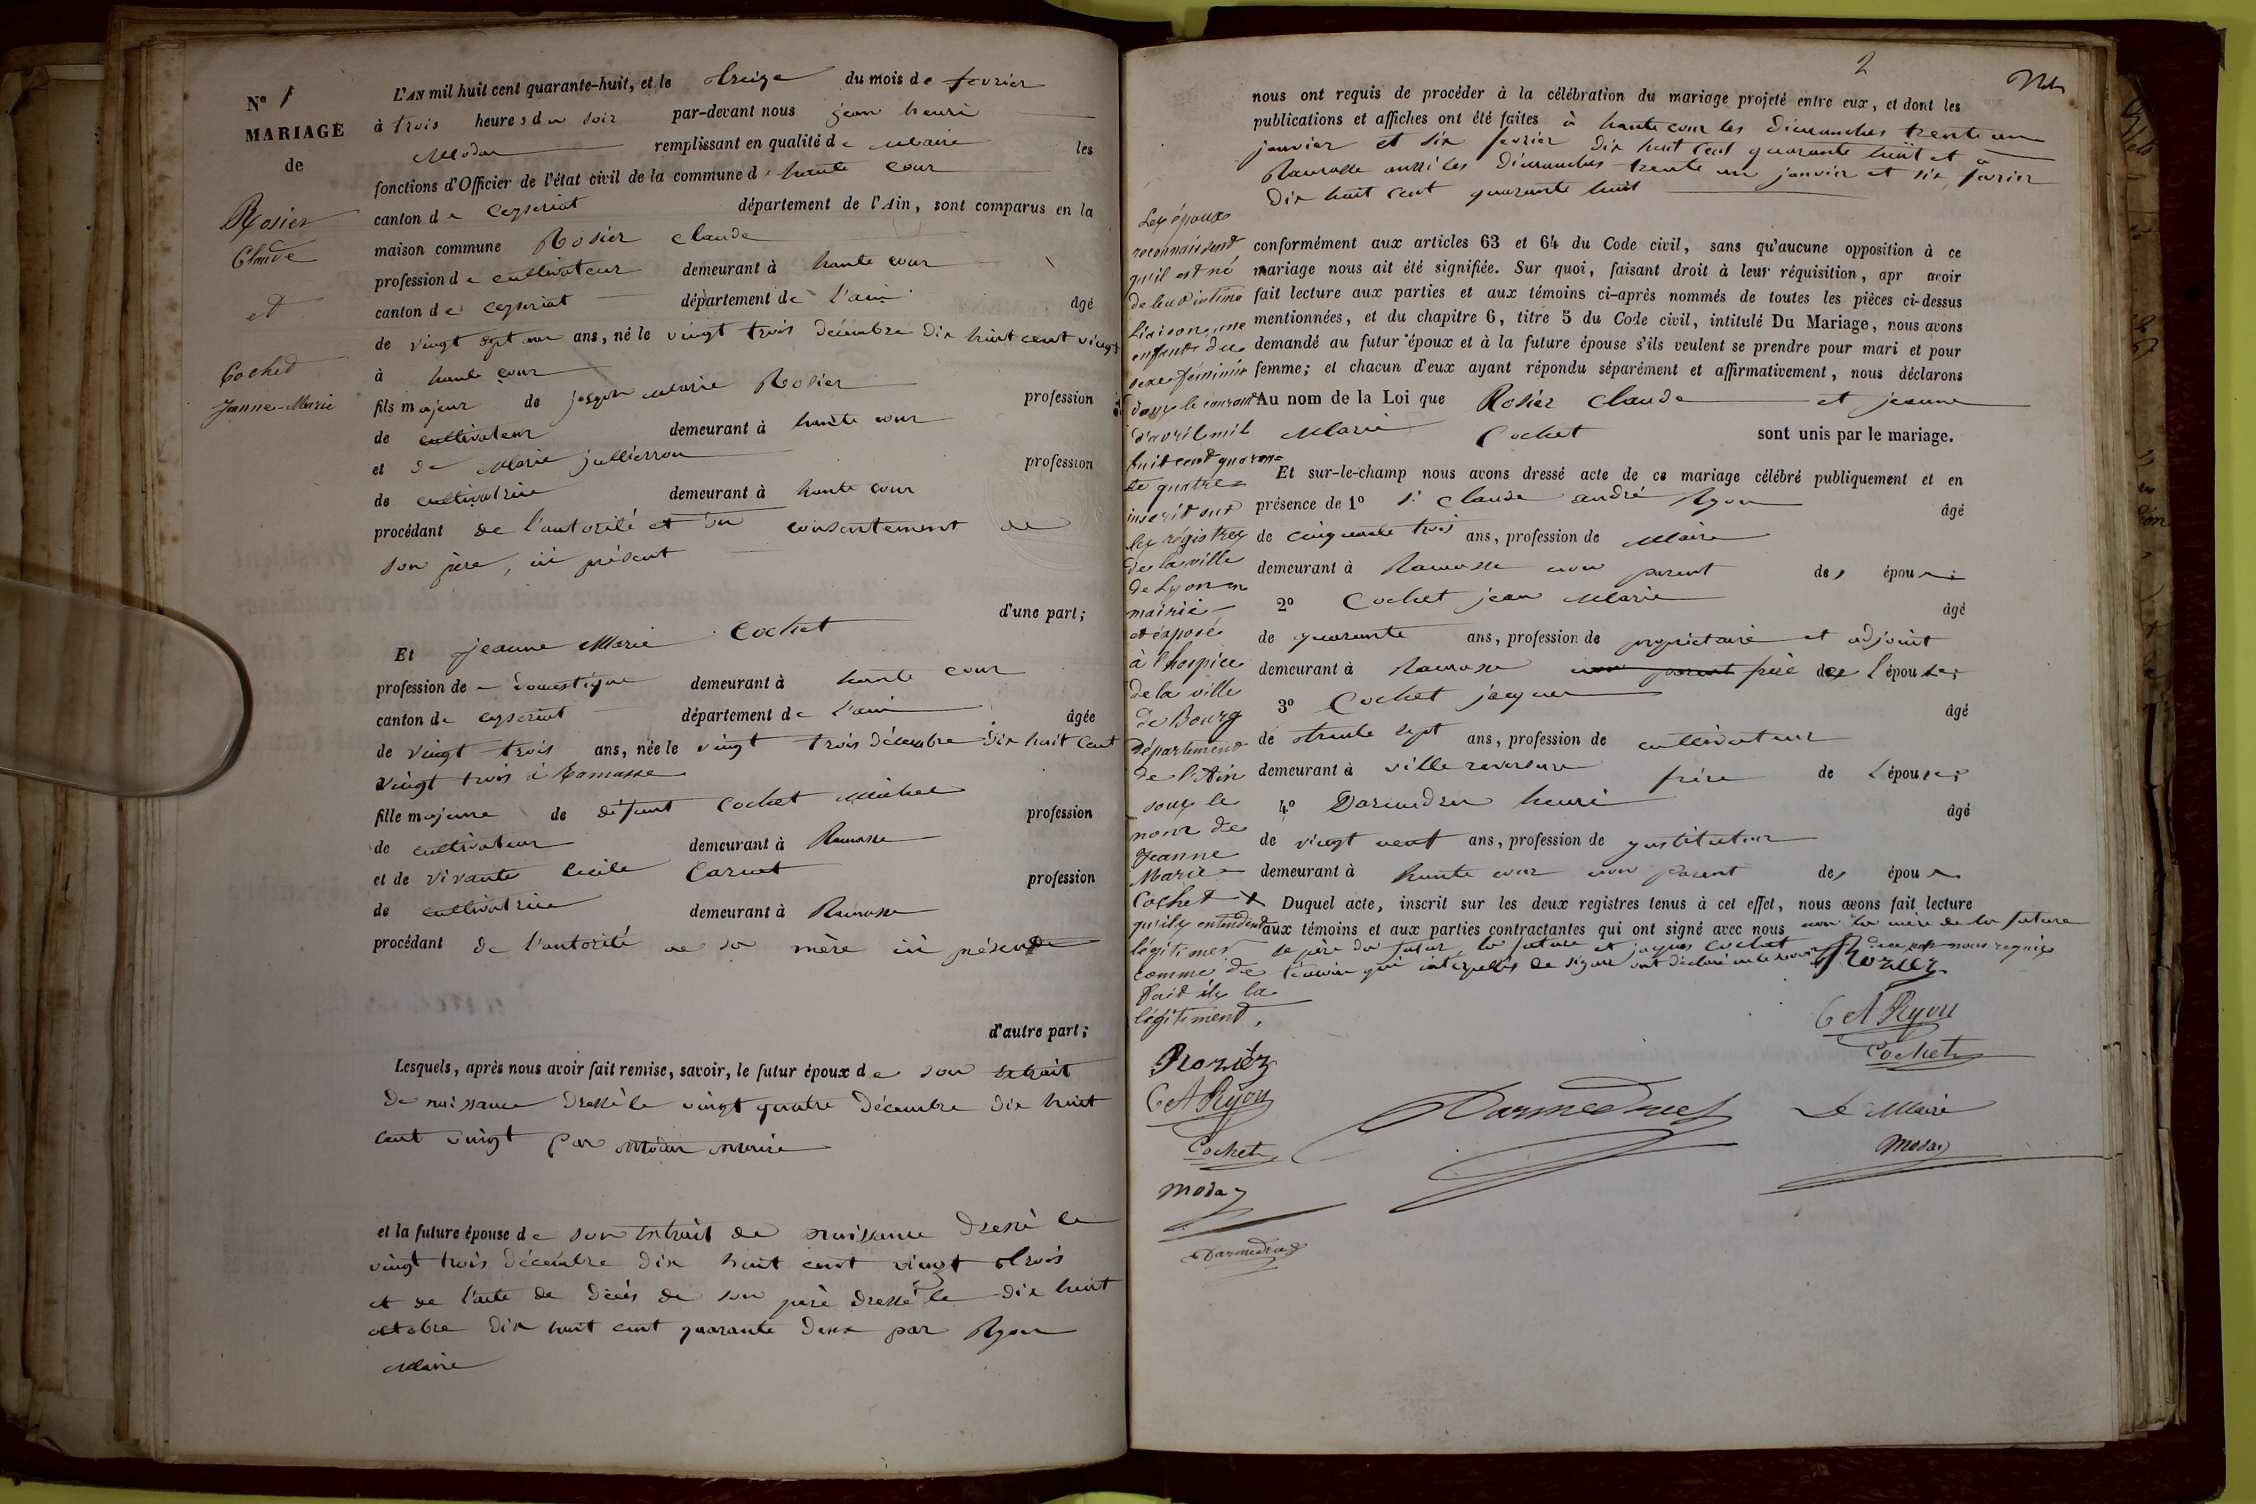 N° 1
MARIAGE
de
Rosier
Claude
et
Cochet
Janne-Marie
L'AN mil huit cent quarante-huit, et le treize du mois de fevrier
à trois heures du soir par-devant nous jean henri
Modas remplissant en qualité de Maire les
fonctions d'Officier de l'état civil de la commune d haute cour
canton de Ceyseriat département de l'Ain, sont comparus en la
maison commune Rosier Claude
profession de cultivateur demeurant à haute cour
canton de ceyseriat département de l'ain âgé
de vingt sept ans, né le vingt trois décembre dix huit cent vingt
à haute cour
fils majeur de joseph marie Rosier profession
de cultivateur demeurant à haute cour
et de Marie jullierron profession
de cultivatrice demeurant à haute cour
procédant de l'autorité et du consentement de
son père, ici présent
d'une part;
Et jeanne Marie Cochet
profession de domestique demeurant à haute cour
canton de ceyseriat département de l'ain âgée
de vingt trois ans, née le vingt trois décembre dix huit cent
vingt trois à Ramasse
fille majeure de défunt Cochet Michel profession
de cultivateur demeurant à Ramasse
et de vivante Cecile Carnet profession
de cultivatrice demeurant à Ramasse
procédant de l'autorité de sa mère ici présente
d'autre part;
Lesquels, après nous avoir fait remise, savoir, le futur époux de son extrait
de naissance dressé le vingt quatre décembre dix huit
cent vingt par maire
et la future épouse de son extrait de naissance dressé le
vingt trois décembre dix huit cent vingt trois
et de l'acte de décès de son père dressé le dix huit
octobre dix huit cent quarante deux par Ryon
Maire
2
nous ont requis de procéder à la célébration du mariage projeté entre eux, et dont les
publications et affiches ont été faites à haute cour les dimanches trente un
janvier et six fevrier dix huit cent quarante huit et à
Ramasse aussi les dimanches trente un janvier et six fevrier
dix huit cent quarante huit
conformément aux articles 63 et 64 du Code civil, sans qu'aucune opposition à ce
mariage nous ait été signifiée. Sur quoi, faisant droit à leur réquisition, apr avoir
fait lecture aux parties et aux témoins ci-après nommés de toutes les pièces ci-dessus
mentionnées, et du chapitre 6, titre 5 du Code civil, intitulé Du Mariage, nous avons
demandé au futur époux et à la future épouse s'ils veulent se prendre pour mari et pour
femme; et chacun d'eux ayant répondu séparément et affirmativement, nous déclarons
Au nom de la Loi que Rosier Claude et jeanne
Marie Cochet sont unis par le mariage.
Et sur-le-champ nous avons dressé acte de ce mariage célébré publiquement et en
présence de 1° Sr Claude andré Ryon âgé
de cinquante trois ans, profession de Maire
demeurant à Ramasse non parent des époux
2° Cochet jean Marie âgé
de quarante ans, profession de propriétaire et adjoint
demeurant à Ramasse non parent frère de l'épouse;
3° Cochet jacques âgé
de trente sept ans, profession de cultivateur
demeurant à villereversure frère de l'épouse;
4° Darmedru henri âgé
de vingt neuf ans, profession de institeteur
demeurant à haute cour non parent des époux.
Duquel acte, inscrit sur les deux registres tenus à cet effet, nous avons fait lecture
aux témoins et aux parties contractantes qui ont signé avec nous non la mère de la future
le père du futur, la future et jacques Cochet
témoin qui interpellés de signer ont déclaré ne le savoir de ce nous requis
Rozier
C A Ryon
Cochet
Darmedru
Le Maire
Modas
Les époux
reconnaissent
qu'il est né
de leur intime
liaison, une
enfant du
sexe féminin
dans le courant
d'avril mil
huit cent quaran=
te quatre
inscrit sur
les régistres
de la ville
de Lyon en
mairie
et exposé
à l'hospice
de la ville
de Bourg
département
de l'Ain
sous le
nom de
Jeanne
Marie
Cochet
qu'ils entendent
légitimer
comme de
fait ils la
légitiment.
Roziér
C A Ryon
Cochet
Modas
Darmedru